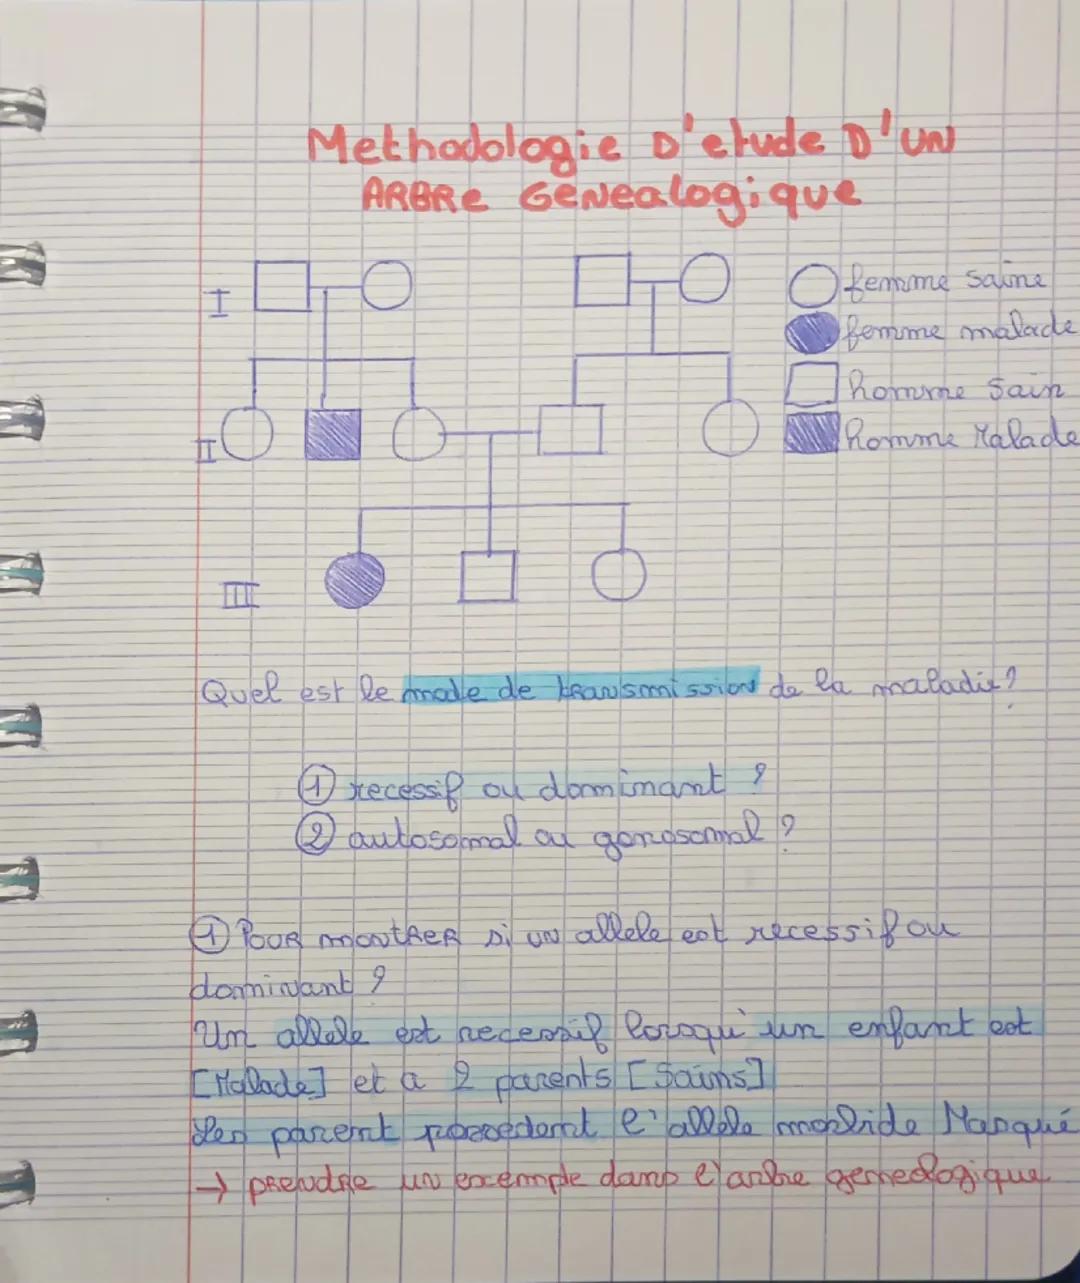 Methodologie D'etude D'UN
ARBRe GeNealogique
I
femme saine
femme malade
homme Sain
II
homme Malade
III
Quel est le mode de transmission de la maladie?
① recessif ou dominant ?
② autosomal ou gonosomal ?
① Pour montrer si un allele est recessif ou
dominant ?
Un allele est recessif lorsqu'un enfant est
[Malade] et a 2 parents [Sains]
Les parent possedent l'allele morbide Masqué
→ prendre un exemple dans l'arbre geneologique